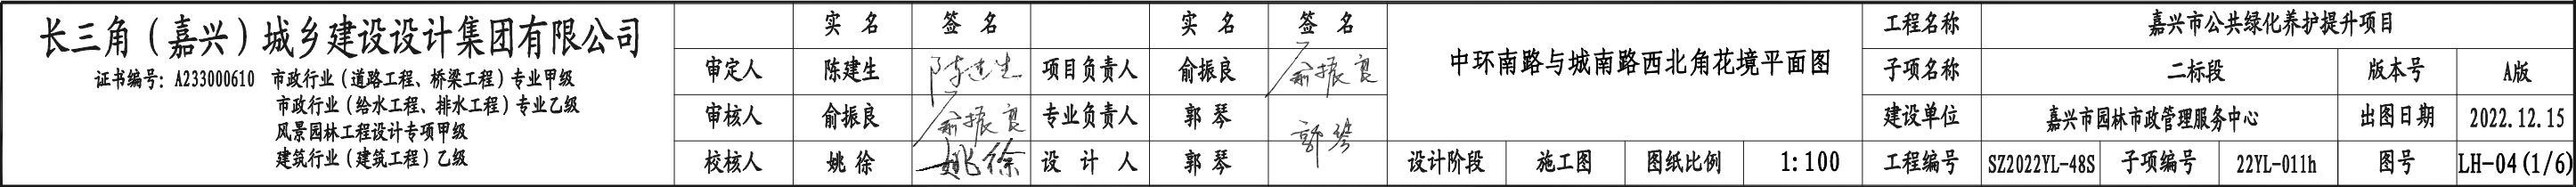 长三角（嘉兴）城乡建设设计集团有限公司
证书编号：A233000610 市政行业（道路工程、桥梁工程）专业甲级
市政行业（给水工程、排水工程）专业乙级
风景园林工程设计专项甲级
建筑行业（建筑工程）乙级
实 名 签 名 实 名 签 名
审定人 陈建生 陈建生 项目负责人 俞振良 俞振良
审核人 俞振良 俞振良 专业负责人 郭 琴 郭琴
校核人 姚 徐 姚徐 设 计 人 郭 琴
中环南路与城南路西北角花境平面图
设计阶段 施工图 图纸比例 1:100
工程名称 嘉兴市公共绿化养护提升项目
子项名称 二标段 版本号 A版
建设单位 嘉兴市园林市政管理服务中心 出图日期 2022.12.15
工程编号 SZ2022YL-48S 子项编号 22YL-011h 图号 LH-04(1/6)